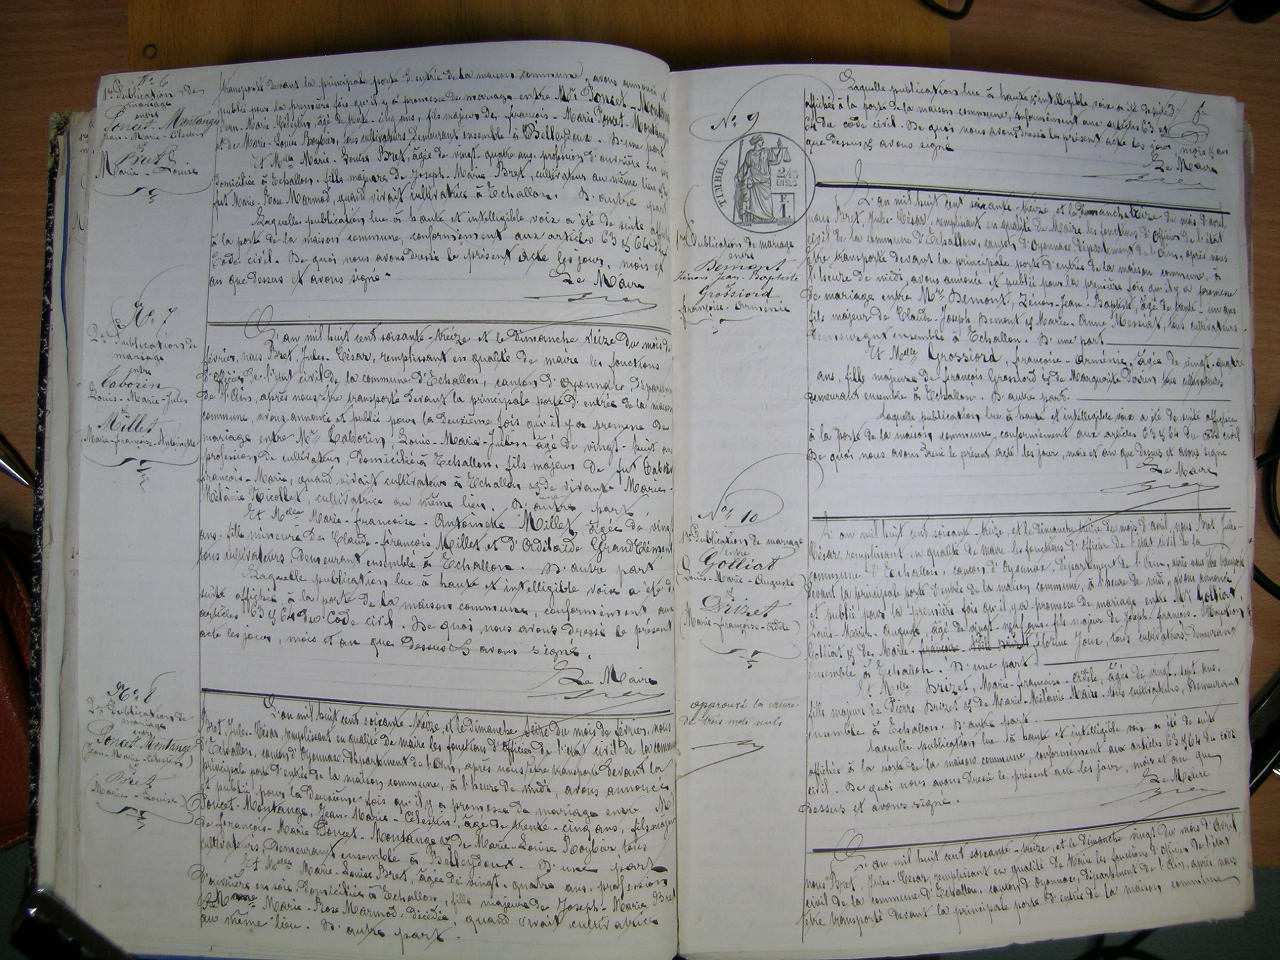 N° 6
1re Publication de
mariage
entre
Poncet-Montange
Jean-Marie-Célestin
&
Bret
Marie-Louise
transporté devant la principale porte d'entrée de la maison commune, avons annoncé et
publié pour la première fois qu'il y a promesse de mariage entre Mr Poncet-Montange
Jean-Marie-Célestin, âgé de trente-cinq ans, fils majeur de François-Marie Poncet-Montange
et de Marie-Louise, tous cultivateurs demeurant ensemble à Belleydoux. D'une part
Et Melle Marie-Louise Bret, âgée de vingt-quatre ans, profession d'ouvrière en
domiciliée à Echallon, fille majeure de Joseph-Marie Bret, cultivateur au même lieu et de
fut Marie-Rose Marmod, quand vivait cultivatrice à Echallon. D'autre part
Laquelle publication lue à haute et intelligible voix a été de suite affichée
à la porte de la maison commune, conformément aux articles 63 & 64 du
Code civil. De quoi nous avons dressé le présent acte les jour, mois et
an que dessus et avons signé.
Le Maire
Bret
N° 7
2e Publication de
mariage
entre
Taborin
Louis-Marie-Jules
&
Millet
Marie-françoise-Antoinette
L'an mil huit cent soixante-treize et le dimanche seize du mois de
février, nous Bret, Jules-César, remplissant en qualité de maire les fonctions
d'Officier de l'état civil de la commune d'Echallon, canton d'Oyonnax, Département
de l'Ain, après nous être transporté devant la principale porte d'entrée de la maison
commune, avons annoncé et publié pour la deuxième fois qu'il y a promesse de
mariage entre Mr Taborin, Louis-Marie-Jules, âgé de vingt-huit ans
profession de cultivateur, domicilié à Echallon, fils majeur de fut Taborin
françois-Marie, quand vivait cultivateur à Echallon et de vivante Marie-
Mélanie Nicollet, cultivatrice au même lieu. D'une part,
Et Melle Marie-françoise-Antoinette Millet, âgée de vingt
ans, fille mineure de Claude-françois Millet et d'Adélaïde GrandClément
tous cultivateurs demeurant ensemble à Echallon. D'autre part
Laquelle publication lue à haute et intelligible voix a été de
suite affichée à la porte de la maison commune, conformément aux
articles 63 & 64 du Code civil. De quoi nous avons dressé le présent
acte les jour, mois et an que dessus & avons signé.
Le Maire
Bret
N° 8
2e Publication de
mariage
entre
Poncet-Montange
(Jean-Marie-Célestin)
&
Bret
(Marie-Louise)
L'an mil huit cent soixante-treize, et le dimanche seize du mois de février, nous
Bret, Jules-César, remplissant en qualité de maire les fonctions d'Officier de l'état civil de la commune
d'Echallon, canton d'Oyonnax, département de l'Ain, après nous être transporté devant la
principale porte d'entrée de la maison commune, à l'heure de midi, avons annoncé
et publié pour la deuxième fois qu'il y a promesse de mariage entre Mr
Poncet-Montange, Jean-Marie-Célestin, âgé de trente-cinq ans, fils majeur
de françois-Marie Poncet-Montange & de Marie-Louise tous
cultivateurs demeurant ensemble à Belleydoux. D'une part
Et Melle Marie-Louise Bret, âgée de vingt-quatre ans, profession
d'ouvrière en soie, domiciliée à Echallon, fille majeure de Joseph-Marie Bret
& de Marie-Rose Marmod, décédée quand vivait cultivatrice
au même lieu. D'autre part.
Laquelle publication lue à haute et intelligible voix a été de suite
affichée à la porte de la maison commune, conformément aux articles 63 et
64 du code civil. De quoi nous avons dressé le présent acte les jour, mois & an
que dessus & avons signé
Le Maire
Bret
N° 9
TIMBRE
Publication de mariage
entre
Bemont
Zénon-Jean-Baptiste
&
Grossiord
françoise-Arménie
L'an mil huit cent soixante-treize et le dimanche treize du mois d'avril
nous, Bret, Jules-César, remplissant en qualité de Maire les fonctions d'Officier de l'état
civil de la commune d'Echallon, canton d'Oyonnax, département de l'Ain, après nous
être transporté devant la principale porte d'entrée de la maison commune, à
l'heure de midi, avons annoncé et publié pour la première fois qu'il y a promesse
de mariage entre Mr Bemont, Zénon-Jean-Baptiste, âgé de trente-un ans
fils majeur de Claude-Joseph Bemont & de Marie-Anne Mermet, tous cultivateurs
demeurant ensemble à Echallon. D'une part
Et Melle Grossiord, françoise-Arménie, âgée de vingt-quatre
ans, fille majeure de françois Grossiord & de Marguerite tous cultivateurs
demeurant ensemble à Echallon. D'autre part.
Laquelle publication, lue à haute et intelligible voix a été de suite affichée
à la porte de la maison commune, conformément aux articles 63 & 64 du code civil
De quoi nous avons dressé le présent acte les jour, mois et an que dessus et avons signé
Le Maire
Bret
N° 10
1re Publication de mariage
entre
Golliat
(Louis-Marie-Auguste
et
Brizet
(Marie-françoise-)
approuvé la rature
de trois mots nuls
L'an mil huit cent soixante-treize et le dimanche treize du mois d'avril, nous Bret, Jules-
César remplissant en qualité de maire les fonctions d'Officier de l'état civil de la
commune d'Echallon, canton d'Oyonnax, département de l'Ain, après nous être transporté
devant la principale porte d'entrée de la maison commune, à l'heure de midi, avons annoncé
et publié pour la première fois qu'il y a promesse de mariage entre Mr Golliat
Louis-Marie-Auguste, âgé de vingt-neuf ans, fils majeur de Joseph-françois-
Golliat & de Marie tous cultivateurs demeurant
ensemble à Echallon. D'une part
& Melle Brizet, Marie-françoise-, âgée de vingt-sept ans,
fille majeure de Pierre Brizet & de Marie-Mélanie Maire, tous cultivateurs, demeurant
ensemble à Echallon. D'autre part.
Laquelle publication lue à haute et intelligible voix a été de suite
affichée à la porte de la maison commune, conformément aux articles 63 & 64 du code
civil. De quoi nous avons dressé le présent acte les jour, mois et an que
dessus et avons signé.
Le Maire
Bret
L'an mil huit cent soixante-treize et le dimanche vingt du mois d'avril
nous Bret, Jules-César, remplissant en qualité de Maire les fonctions d'Officier de l'état
civil de la commune d'Echallon, canton d'Oyonnax, département de l'Ain, après nous
être transporté devant la principale porte d'entrée de la maison commune